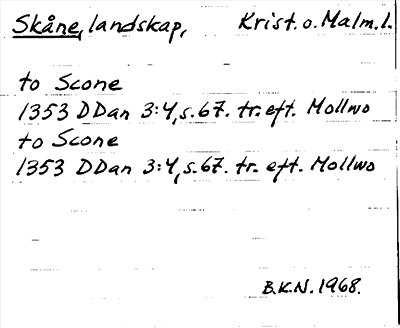 Skåne, landskap, Krist. o. Malm. l.
to Scone
1353 DDan 3:4, s. 67. tr. eft. Mollwo
to Scone
1353 DDan 3:4, s. 67. tr. eft. Mollwo
B.K.N. 1968.